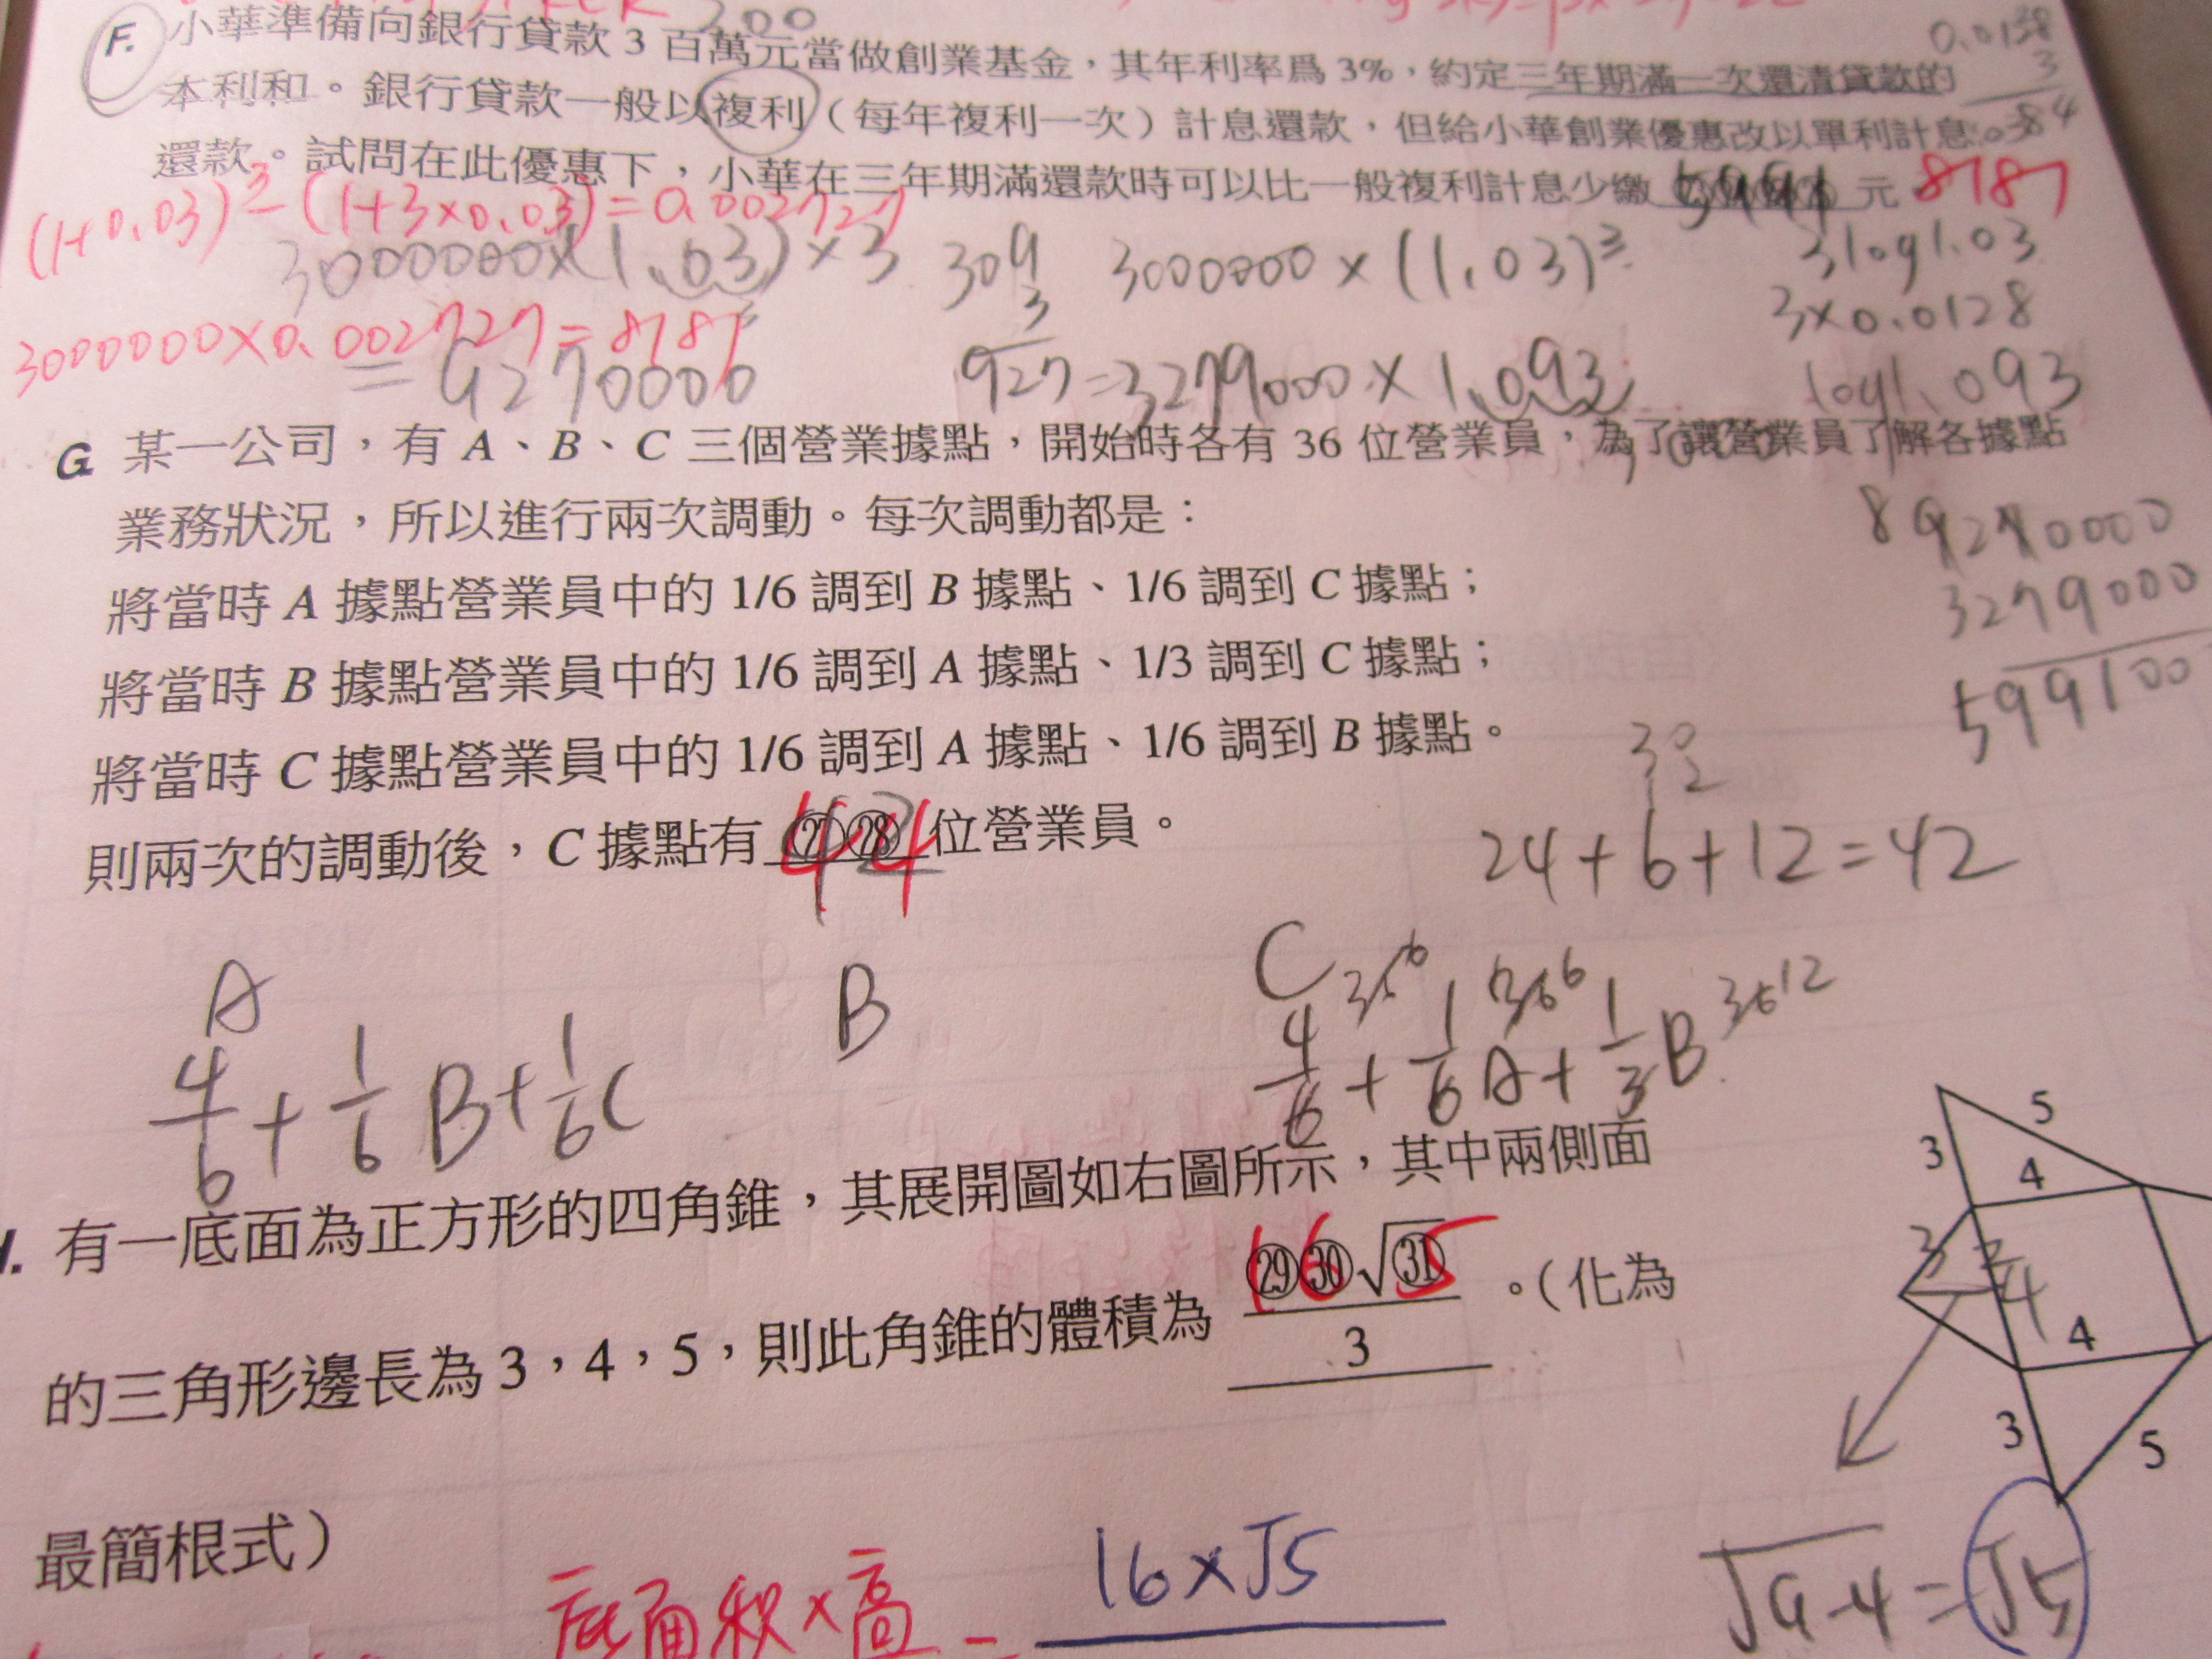 200
F. 小華準備向銀行貸款 3 百萬元當做創業基金，其年利率爲 3%，約定三年期滿一次還清貸款的
本利和。銀行貸款一般以複利（每年複利一次）計息還款，但給小華創業優惠改以單利計息
還款。試問在此優惠下，小華在三年期滿還款時可以比一般複利計息少繳 元 8181
(1+0.03)³-(1+3×0.03)=0.002727
3000000×(1.03)×3
309
3
927
3000000×(1.03)³
3log1.03
3×0.0128
3000000×0.002727=8181
=9270000
=3279000×1.093
log1.093
G. 某一公司，有 A、B、C 三個營業據點，開始時各有 36 位營業員，為了讓營業員了解各據點
業務狀況，所以進行兩次調動。每次調動都是：
9270000
3279000
5991000
將當時 A 據點營業員中的 1/6 調到 B 據點、1/6 調到 C 據點；
將當時 B 據點營業員中的 1/6 調到 A 據點、1/3 調到 C 據點；
將當時 C 據點營業員中的 1/6 調到 A 據點、1/6 調到 B 據點。
則兩次的調動後，C 據點有 ㉗㉘ 位營業員。
44
24+6+12=42
A
4/6+1/6B+1/6C
B
C
4/6+1/6A+1/3B
有一底面為正方形的四角錐，其展開圖如右圖所示，其中兩側面
的三角形邊長為 3，4，5，則此角錐的體積為 ㉙㉚√㉛/3 。（化為
16 5
最簡根式）
3
5
4
3
4
4
3
5
√9-4=√5
底面積×高=
16×√5